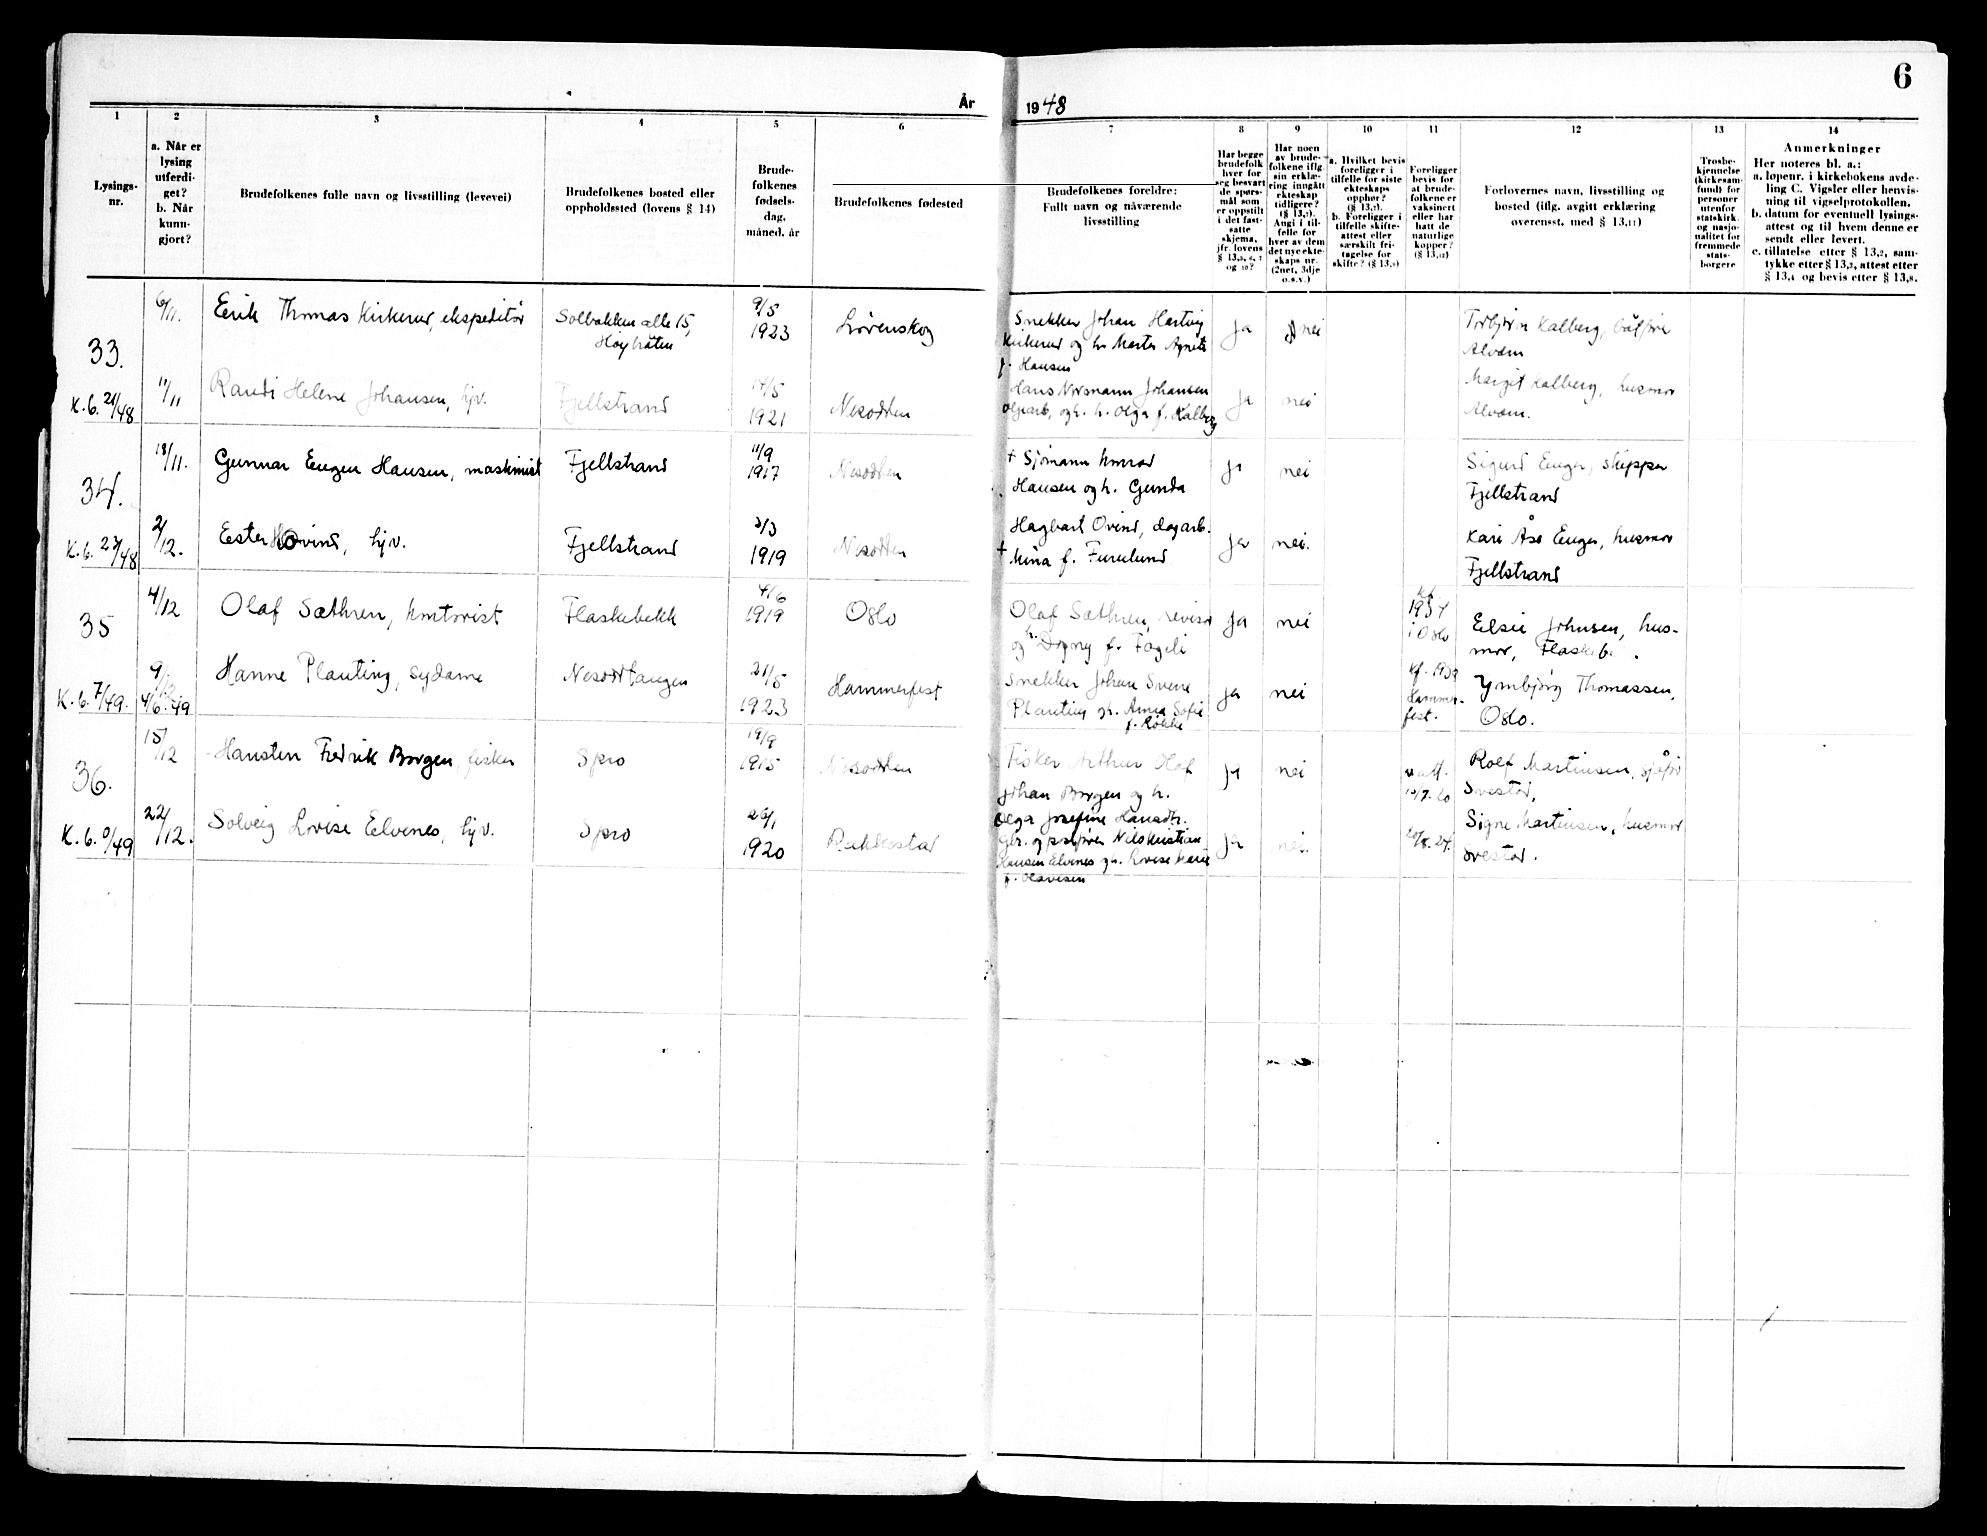 6
År
19 48
1
2
3
4
5
6
7
8
9
10
11
12
13
14
Lysings-
nr.
a. Når er
lysing
utferdi-
get?
b. Når
kunn-
gjort?
Brudefolkenes fulle navn og livsstilling (levevei)
Brudefolkenes bosted eller
oppholdssted (lovens § 14)
Brude-
folkenes
fødsels-
dag,
måned, år
Brudefolkenes fødested
Brudefolkenes foreldre:
Fullt navn og nåværende
livsstilling
Har begge
brudefolk
hver for
seg besvart
de spørs-
mål som
er oppstilt
i det fast-
satte
skjema,
jfr. lovens
Har noen
av brude-
folkene iflg.
sin erklæ-
ring inngått
ekteskap
tidligere?
(§ 13,7).
Angi i til-
felle for
hver av dem
det nye ekte-
skaps nr.
(2net, 3dje
o.s.v.)
a. Hvilket bevis
foreligger i
tilfelle for siste
ekteskaps
opphør?
b. Foreligger i
tilfelle skifte-
attest eller
særskilt fri-
tagelse for
Foreligger
bevis for
at brude-
folkene er
vaksinert
eller har
hatt de
naturlige
kopper?
Forlovernes navn, livsstilling og
bosted (iflg. avgitt erklæring
overensst. med § 13,11)
Trosbe-
kjennelse
(kirkesam-
fund) for
personer
utenfor
statskirk.
og nasjo-
nalitet for
fremmede
stats-
borgere
Anmerkninger
Her noteres bl. a.:
a. løpenr. i kirkebokens avde-
ling C. Vigsler eller henvis-
ning til vigselprotokollen.
b. datum for eventuell lysings-
attest og til hvem denne er
sendt eller levert.
c. tillatelse etter § 13,2, sam-
tykke etter § 13,3, attest etter
§ 13,4 og bevis etter § 13,8.
33.
6/11.
Erik Thomas Kirkerud, ekspeditør
Solbakken alle 15,
Høybråten
9/5
1923
Lørenskog
Snekker Johan Hartvig
Kirkerud og h. Marta Agnete
f. Hansen
ja
nei
Torbjørn Kalberg,
Alvern
K.b. 21/48
11/11
Randi Helene Johansen, hjv.
Fjellstrand
14/5
1921
Nesodden
Hans Normann Johansen
og h. Olga f. Kalberg
ja
nei
Margit Kalberg, husmor
Alvern.
34.
18/11.
Gunnar Eugen Hansen, maskinist
Fjellstrand
11/9
1917
Nesodden
+ Sjømann Konrad
Hansen og h. Gunda
ja
nei
Sigurd Enger, skipper
Fjellstrand
K.b. 23/48
2/12.
Ester Ovind, hjv.
Fjellstrand
3/3
1919
Nesodden
Hagbart Ovind, dagarb.
+ Mina f. Furulund
ja
nei.
Kari Åse Enger, husmor
Fjellstrand
35
4/12
Olaf Sæthren, kontorist
Flaskebekk
4/6
1919
Oslo
Olaf Sæthren, revisor
og h. Dagny f. Fageli
ja
nei
kf
1934
i Oslo
Elsie Johnsen, hus-
mor,
K.b. 7/49.
4/6.49
Hanne Planting, sydame
Nesoddtangen
21/5
1923
Hammerfest
Snekker Johan Sverre
Planting og h. Anna Sofie
f. Røkke
ja
nei
kf. 1939
Hammer-
fest.
Ymbjørg Thomassen,
Oslo.
36.
15/12
Hansten Fredrik Borgen, fisker
Spro
19/9
1915
Nesodden
Fisker Arthur Olaf
Johan Borgen og h.
Olga Josefine Hansdtr.
ja
nei
Rolf Martinsen,
Svestad,
22/12.
Solveig Lovise Elvenes, hjv.
Spro
26/1
1920
Rakkestad
Nils Kristian
Hansen Elvenes og h. Lovise Marie
f. Olavesen
ja
nei.
Signe Martinsen, husmor
Svestad.